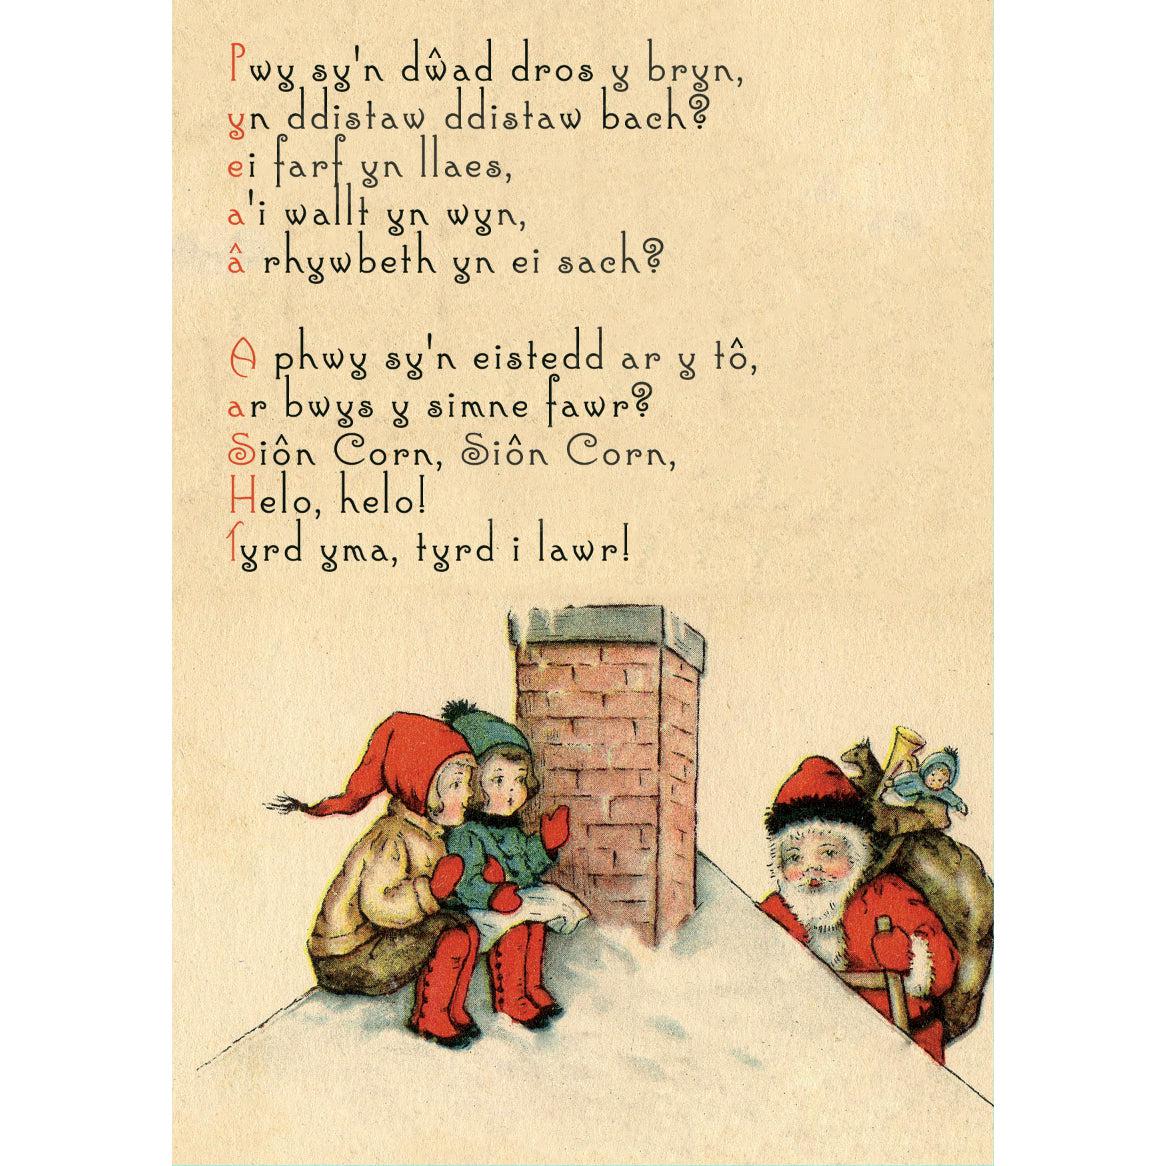 Pwy sy'n dŵad dros y bryn,
yn ddistaw ddistaw bach?
ei farf yn llaes,
a'i wallt yn wyn,
â rhywbeth yn ei sach?
A phwy sy'n eistedd ar y tô,
ar bwys y simne fawr?
Siôn Corn, Siôn Corn,
Helo, helo!
Tyrd yma, tyrd i lawr!